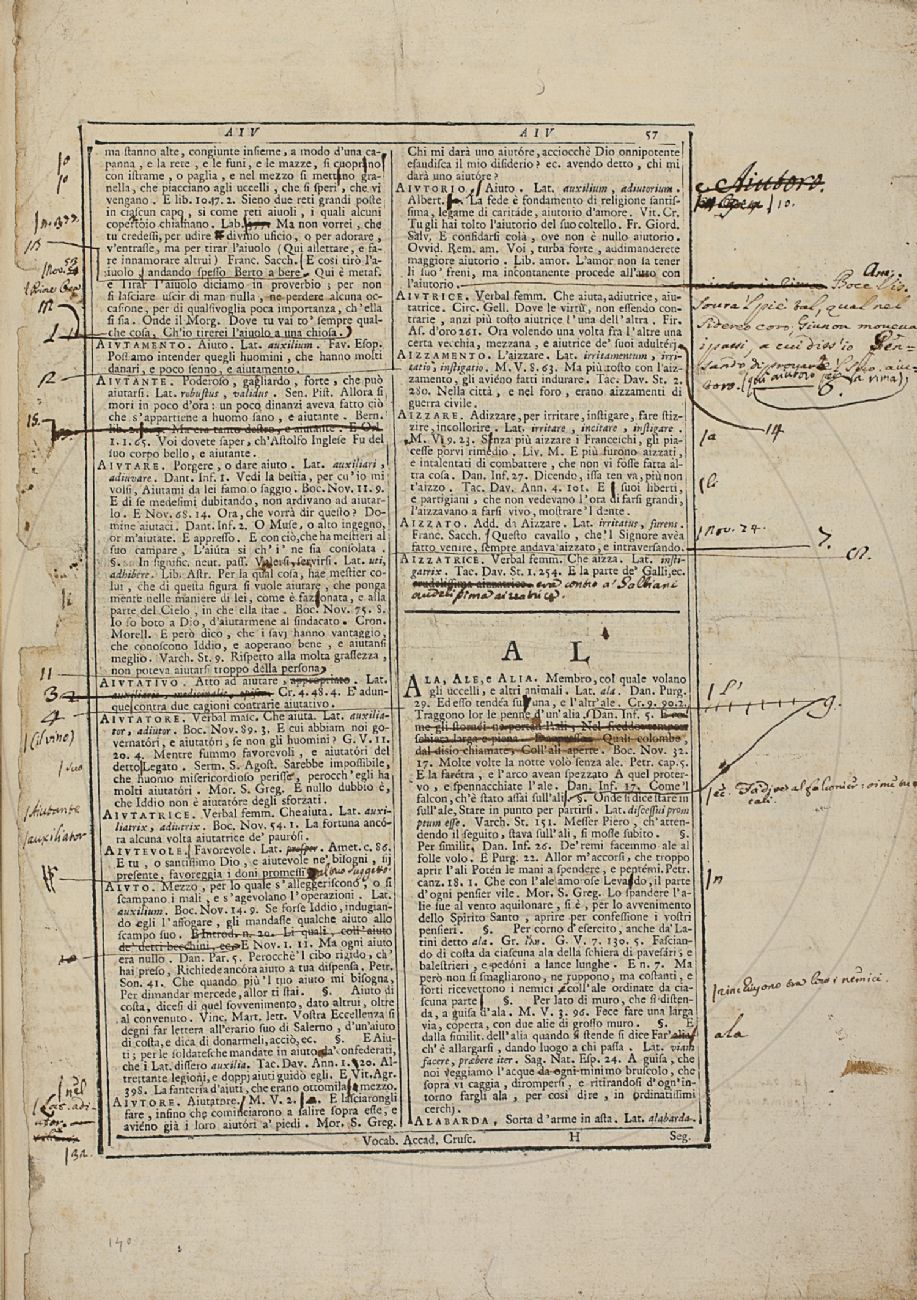 AIV AIV 57
ma stanno alte, congiunte insieme, a modo d'una ca-
panna, e la rete, e le funi, e le mazze, si cuoprono
con istrame, o paglia, e nel mezzo si mettono gra-
nella, che piacciano agli uccelli, che si speri, che vi
vengano. E lib. 10.47.2. Sieno due reti grandi poste
in ciascun capo, si come reti aiuoli, i quali alcuni
copertoio chiamano. Lab. Ma non vorrei, che
tu credessi, per udire divino uficio, o per adorare,
v'entrasse, ma per tirar l'aiuolo (Qui allettare, e fa-
re innamorare altrui) Franc. Sacch. E così tirò l'a-
iuolo, andando spesso Berto a bere. Qui è metaf.
e Tirar l'aiuolo diciamo in proverbio; per non
si lasciare uscir di man nulla, ne perdere alcuna oc-
casione, per di qualsivoglia poca importanza, ch'ella
si sia. Onde il Morg. Dove tu vai to' sempre qual-
che cosa, Ch'io tirerei l'aiuolo a una chiosa.
AIVTAMENTO. Aiuto. Lat. auxilium. Fav. Esop.
Possiamo intender quegli huomini, che hanno molti
danari, e poco senno, e aiutamento.
AIVTANTE. Poderoso, gagliardo, forte, che può
aiutarsi. Lat. robustus, validus. Sen. Pist. Allora si
mori in poco d'ora: un poco dinanzi aveva fatto ciò
che s'appartiene a huomo sano, e aiutante. Bern.
lib. 2. Ma era tanto destro, e aiutante. E Orl.
1.1.65. Voi dovete saper, ch'Astolfo Inglese Fu del
suo corpo bello, e aiutante.
AIVTARE. Porgere, o dare aiuto. Lat. auxiliari,
adiuvare. Dant. Inf. 1. Vedi la bestia, per cu'io mi
volsi, Aiutami da lei famoso saggio. Boc. Nov. 11.9.
E di se medesimi dubitando, non ardivano ad aiutar-
lo. E Nov. 68. 14. Ora, che vorrà dir questo? Do-
mine aiutaci. Dant. Inf. 2. O Muse, o alto ingegno,
or m'aiutate. E appresso. E con ciò, che ha mestieri al
suo campare, L'aiuta sì ch'i' ne sia consolata.
§. In signific. neut. pass. Valersi, servirsi. Lat. uti,
adhibere. Lib. Astr. Per la qual cosa, hae mestier co-
lui, che di questa figura si vuole aiutare, che ponga
mente nelle maniere di lei, come è fazionata, e alla
parte del Cielo, in che ella stae. Boc. Nov. 75. 8.
Io so boto a Dio, d'aiutarmene al sindacato. Cron.
Morell. E però dico, che i savj hanno vantaggio,
che conoscono Iddio, e aoperano bene, e aiutansi
meglio. Varch. St. 9. Rispetto alla molta grassezza,
non poteva aiutarsi troppo della persona,
AIVTATIVO. Atto ad aiutare, appropriato. Lat.
Cr. 4.48.4. E adun-
que contra due cagioni contrarie aiutativo.
AIVTATORE. Verbal masc. Che aiuta. Lat. auxilia-
tor, adiutor. Boc. Nov. 89. 3. E cui abbiam noi go-
vernatóri, e aiutatóri, se non gli huomini? G. V. 11.
20. 4. Mentre fummo favorevoli, e aiutatóri del
detto Legato. Serm. S. Agost. Sarebbe impossibile,
che huomo misericordioso perisse, perocch'egli ha
molti aiutatóri. Mor. S. Greg. E nullo dubbio è,
che Iddio non è aiutatóre degli sforzati.
AIVTATRICE. Verbal femm. Che aiuta. Lat. auxi-
liatrix, adiutrix. Boc. Nov. 54. 1. La fortuna ancó-
ra alcuna volta aiutatrice de' paurosi.
AIVTEVOLE. Favorevole. Lat. prosper. Amet. c. 86.
E tu, o santissimo Dio, e aiutevole ne' bisogni, sij
presente, favoreggia i doni promessi
AIVTO. Mezzo, per lo quale s'alleggeriscono, o si
scampano i mali, e s'agevolano l'operazioni. Lat.
auxilium. Boc. Nov. 14. 9. Se forse Iddio, indugian-
do egli l'affogare, gli mandasse qualche aiuto allo
scampo suo. E Introd. n. 20. Li quali, coll'aiuto
de' detti becchini, ec. E Nov. 1. 11. Ma ogni aiuto
era nullo. Dan. Par. 5. Perocchè'l cibo rigido, ch'
hai preso, Richiede ancóra aiuto a tua dispensa. Petr.
Son. 41. Che quando più'l tuo aiuto mi bisogna,
Per dimandar mercede, allor ti stai. §. Aiuto di
costa, dicesi di quel sovvenimento, dato altrui, oltre
al convenuto. Vinc. Mart. lett. Vostra Eccellenza si
degni far lettera all'erario suo di Salerno, d'un'aiuto
di costa, e dica di donarmeli, acciò, ec. §. E Aiu-
ti; per le soldatesche mandate in aiuto da' confederati,
che i Lat. dissero auxilia. Tac. Dav. Ann. 1. 20. Al-
trettante legioni, e doppj aiuti guidò egli. E Vit. Agr.
398. La fanteria d'aiuti, che erano ottomila, mezzo.
AIVTORE. Aiutatore. M. V. 2. E lasciarongli
fare, insino che cominciarono a salire sopra esse, e
aviéno già i loro aiutóri a' piedi. Mor. S. Greg.
Vocab. Accad. Crusc.
Chi mi darà uno aiutóre, acciocchè Dio onnipotente
esaudisca il mio disiderio? ec. avendo detto, chi mi
darà uno aiutóre?
AIVTORIO. Aiuto. Lat. auxilium, adiutorium.
Albert. La fede è fondamento di religione santis-
sima, legame di caritade, aiutorio d'amore. Vit. Cr.
Tu gli hai tolto l'aiutorio del suo coltello. Fr. Giord.
Salv. E confidarsi colà, ove non è nullo aiutorio.
Ovvid. Rem. am. Voi, turba forte, addimanderete
maggiore aiutorio. Lib. amor. L'amor non sa tener
li suo' freni, ma incontanente procede all'atto con
l'aiutorio.
AIVTRICE. Verbal femm. Che aiuta, adiutrice, aiu-
tatrice. Circ. Gell. Dove le virtù, non essendo con-
trarie, anzi più tosto aiutrice l'una dell'altra. Fir.
As. d'oro 261. Ora volendo una volta fra l'altre una
certa vecchia, mezzana, e aiutrice de' suoi adultérj
AIZZAMENTO. L'aizzare. Lat. irritamentum, irri-
tatio, instigatio. M. V. 8. 63. Ma più tosto con l'aiz-
zamento, gli aviéno fatti indurare. Tac. Dav. St. 2.
280. Nella città, e nel foro, erano aizzamenti di
guerra civile.
AIZZARE. Adizzare, per irritare, instigare, fare stiz-
zire, incollorire. Lat. irritare, incitare, instigare.
M. V. 9. 23. Senza più aizzare i Franceschi, gli pia-
cesse porvi rimedio. Liv. M. E più furono aizzati,
e intalentati di combattere, che non vi fosse fatta al-
tra cosa. Dan. Inf. 27. Dicendo, issa ten va, più non
t'aizzo. Tac. Dav. Ann. 4. 101. E i suoi liberti,
e partigiani, che non vedevano l'ora di farsi grandi,
l'aizzavano a farsi vivo, mostrare 'l dente.
AIZZATO. Add. da Aizzare. Lat. irritatus, furens.
Franc. Sacch. Questo cavallo, che'l Signore avéa
fatto venire, sempre andava aizzato, e intraversando.
AIZZATRICE. Verbal femm. Che aizza. Lat. insti-
gatrix. Tac. Dav. St. 1. 254. E la parte de' Galli, ec.
era contro a' Galbiani
crudelissima aizzatrice.
A L
ALA, ALE, e ALIA. Membro, col quale volano
gli uccelli, e altri animali. Lat. ala. Dan. Purg.
29. Ed esso tendéa su l'una, e l'altr'ale. Cr. 9. 90. 2.
Traggono lor le penne d'un'alia. Dan. Inf. 5. E co-
me gli stornei ne portan l'ali, Nel freddo tempo a
schiera larga e piena. Quali colombe
dal disio chiamate, Coll'ali aperte. Boc. Nov. 32.
17. Molte volte la notte volò senza ale. Petr. cap. 5.
E la farétra, e l'arco avean spezzato A quel proter-
vo, e spennacchiate l'ale. Dan. Inf. 17. Come'l
falcon, ch'è stato assai sull'ali, §. Onde si dice stare in
sull'ale, Stare in punto per partirsi. Lat. discessui prom
ptum esse. Varch. St. 151. Messer Piero, ch'atten-
dendo il seguito, stava sull'ali, si mosse subito. §.
Per similit. Dan. Inf. 26. De' remi facemmo ale al
folle volo. E Purg. 22. Allor m'accorsi, che troppo
aprir l'ali Potén le mani a spendere, e pentémi. Petr.
canz. 18. 1. Che con l'ale amorose Levando, il parte
d'ogni pensier vile. Mor. S. Greg. Lo spandere l'a-
lie sue al vento aquilonare, si è, per lo avvenimento
dello Spirito Santo, aprire per confessione i vostri
pensieri. §. Per corno d'esercito, anche da' La-
tini detto ala. Gr. G. V. 7. 130. 5. Fascian-
do di costa da ciascuna ala della schiera di pavesári; e
balestrieri, e pedóni a lance lunghe. E n. 7. Ma
però non si smagliarono, ne ruppono, ma costanti, e
forti ricevettono i nemici, coll'ale ordinate da cia-
scuna parte §. Per lato di muro, che si disten-
da, a guisa d'ala. M. V. 3. 96. Fece fare una larga
via, coperta, con due alie di grosso muro. §. E
dalla similit. dell'alia quando si stende si dice Far'alia
ch'è allargarsi, dando luogo a chi passa. Lat. viam
facere, præbere iter. Sag. Nat. Esp. 24. A guisa, che
noi veggiamo l'acque da ogni minimo bruscolo, che
sopra vi caggia, dirompersi, e ritirandosi d'ogn'in-
torno fargli ala, per così dire, in ordinatissimi
cerchj.
ALABARDA, Sorta d'arme in asta. Lat. alabarda.
H Seg.
Aiutoro.
10.
Am.
14
Nov. 24.
7.
9.
n
rinchiusono tra loro i nemici.
ala
15.
12
11
3
4
suo
Aiutante
auxiliator
32.